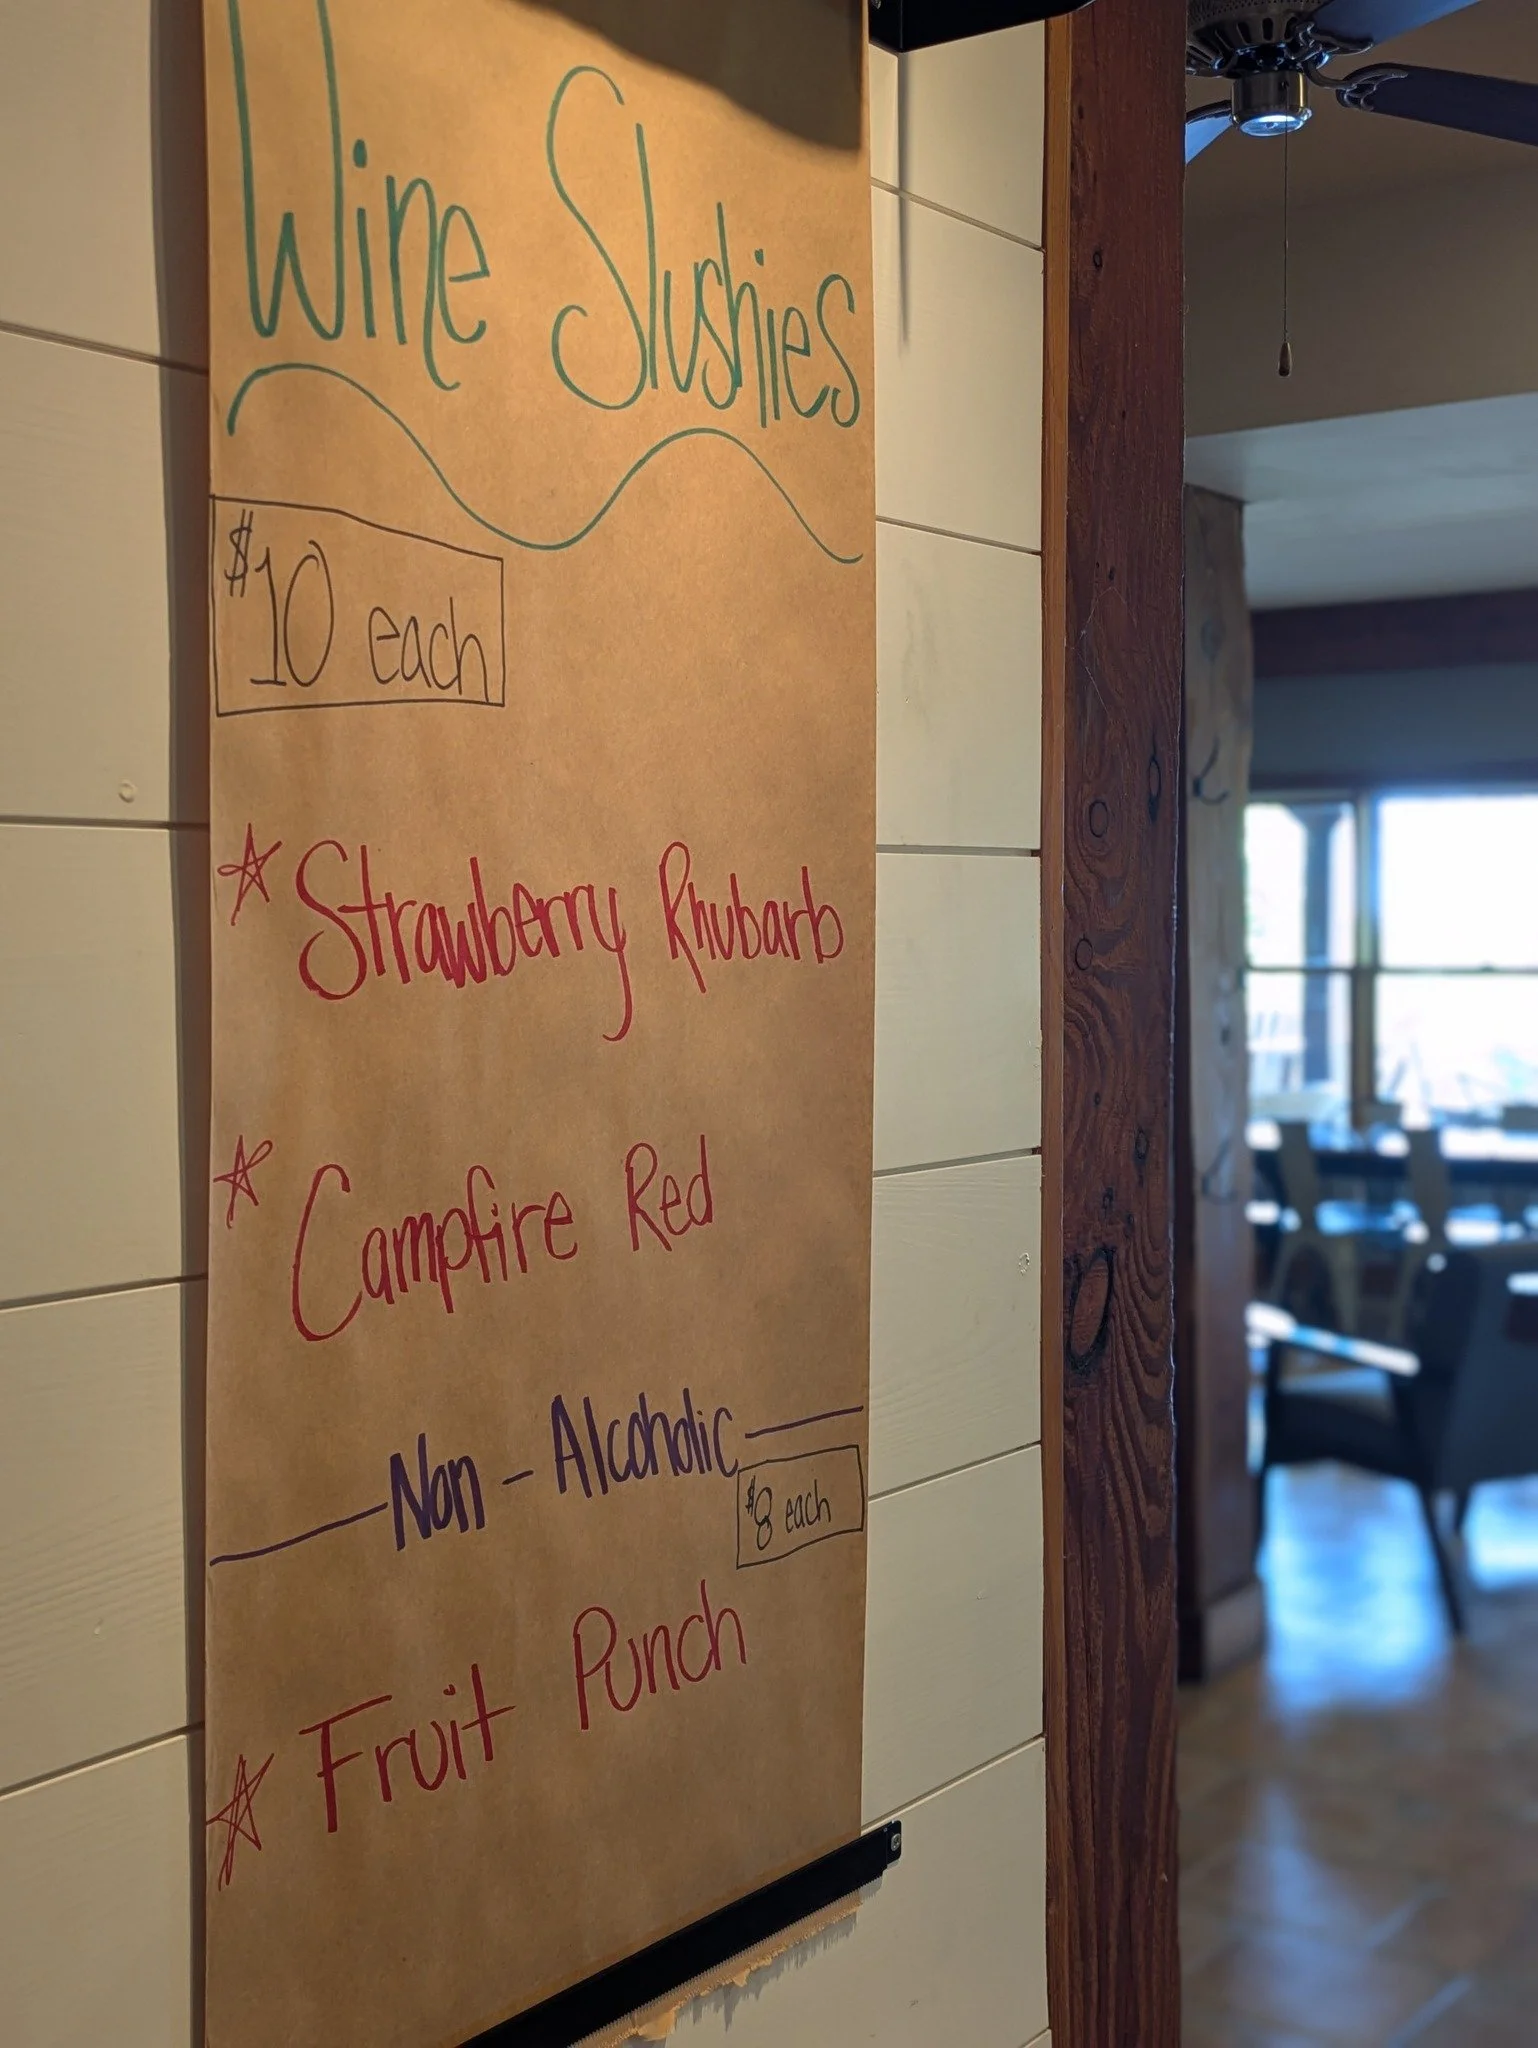 Wine Slushies
$10 each
Strawberry Rhubarb
Campfire Red
Non-Alcoholic
$8 each
Fruit Punch